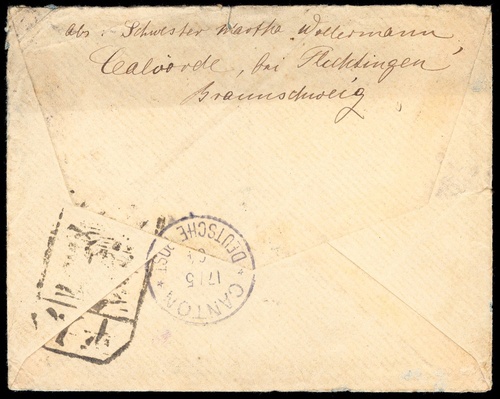 abs: Schwester Martha Wollermann,
Calvörde, bei Flechtingen
Braunschweig
DEUTSCHE POST
17/5
* CANTON *